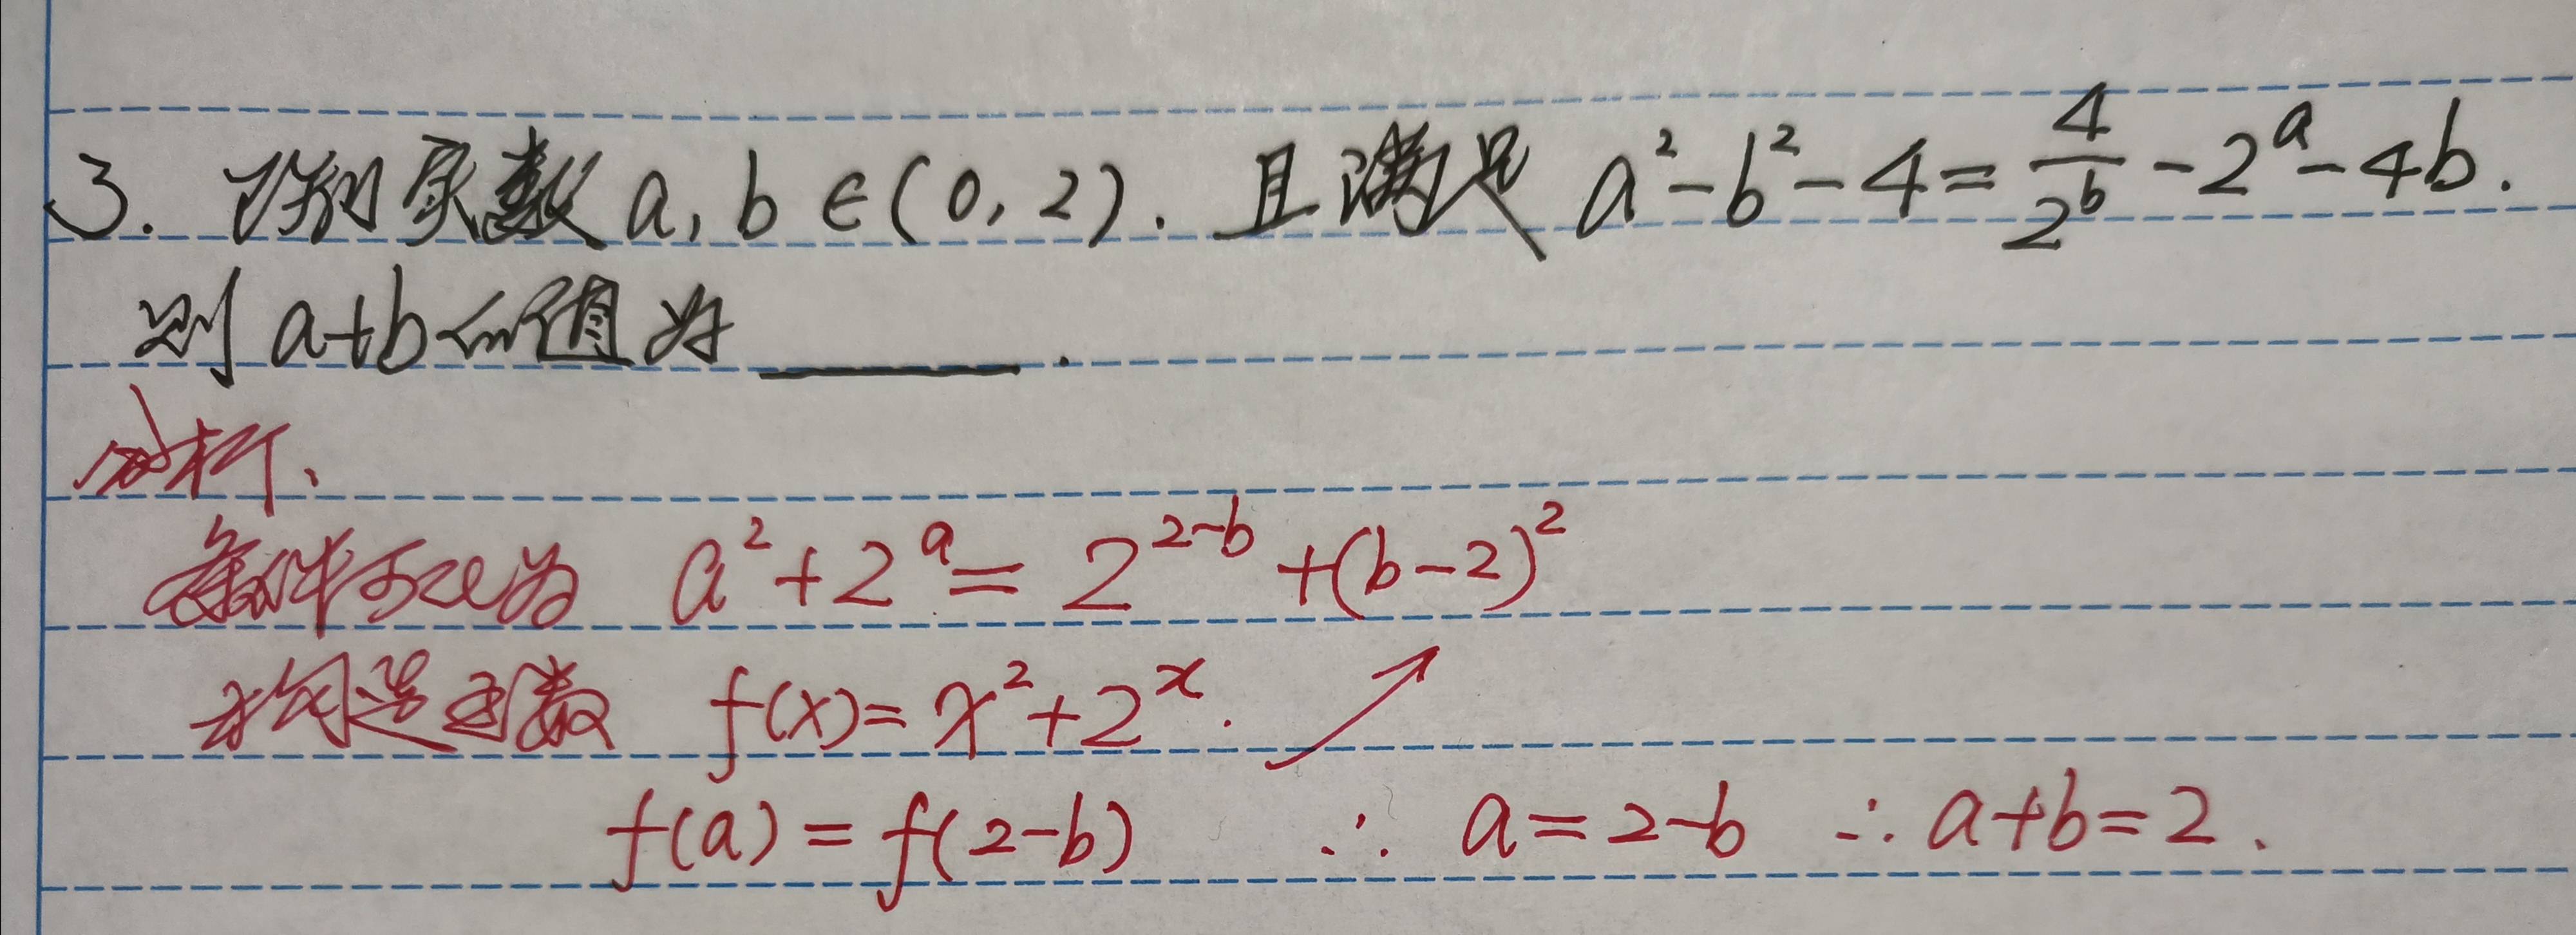 3. 已知实数 a, b ∈ (0, 2). 且满足 a² - b² - 4 = 4/2^b - 2^a - 4b.
则 a+b 的值为 ______ .
分析、
条件可化为 a² + 2^a = 2^(2-b) + (b-2)²
构造函数 f(x) = x² + 2^x. ↗
f(a) = f(2-b) ∴ a = 2-b ∴ a+b = 2.